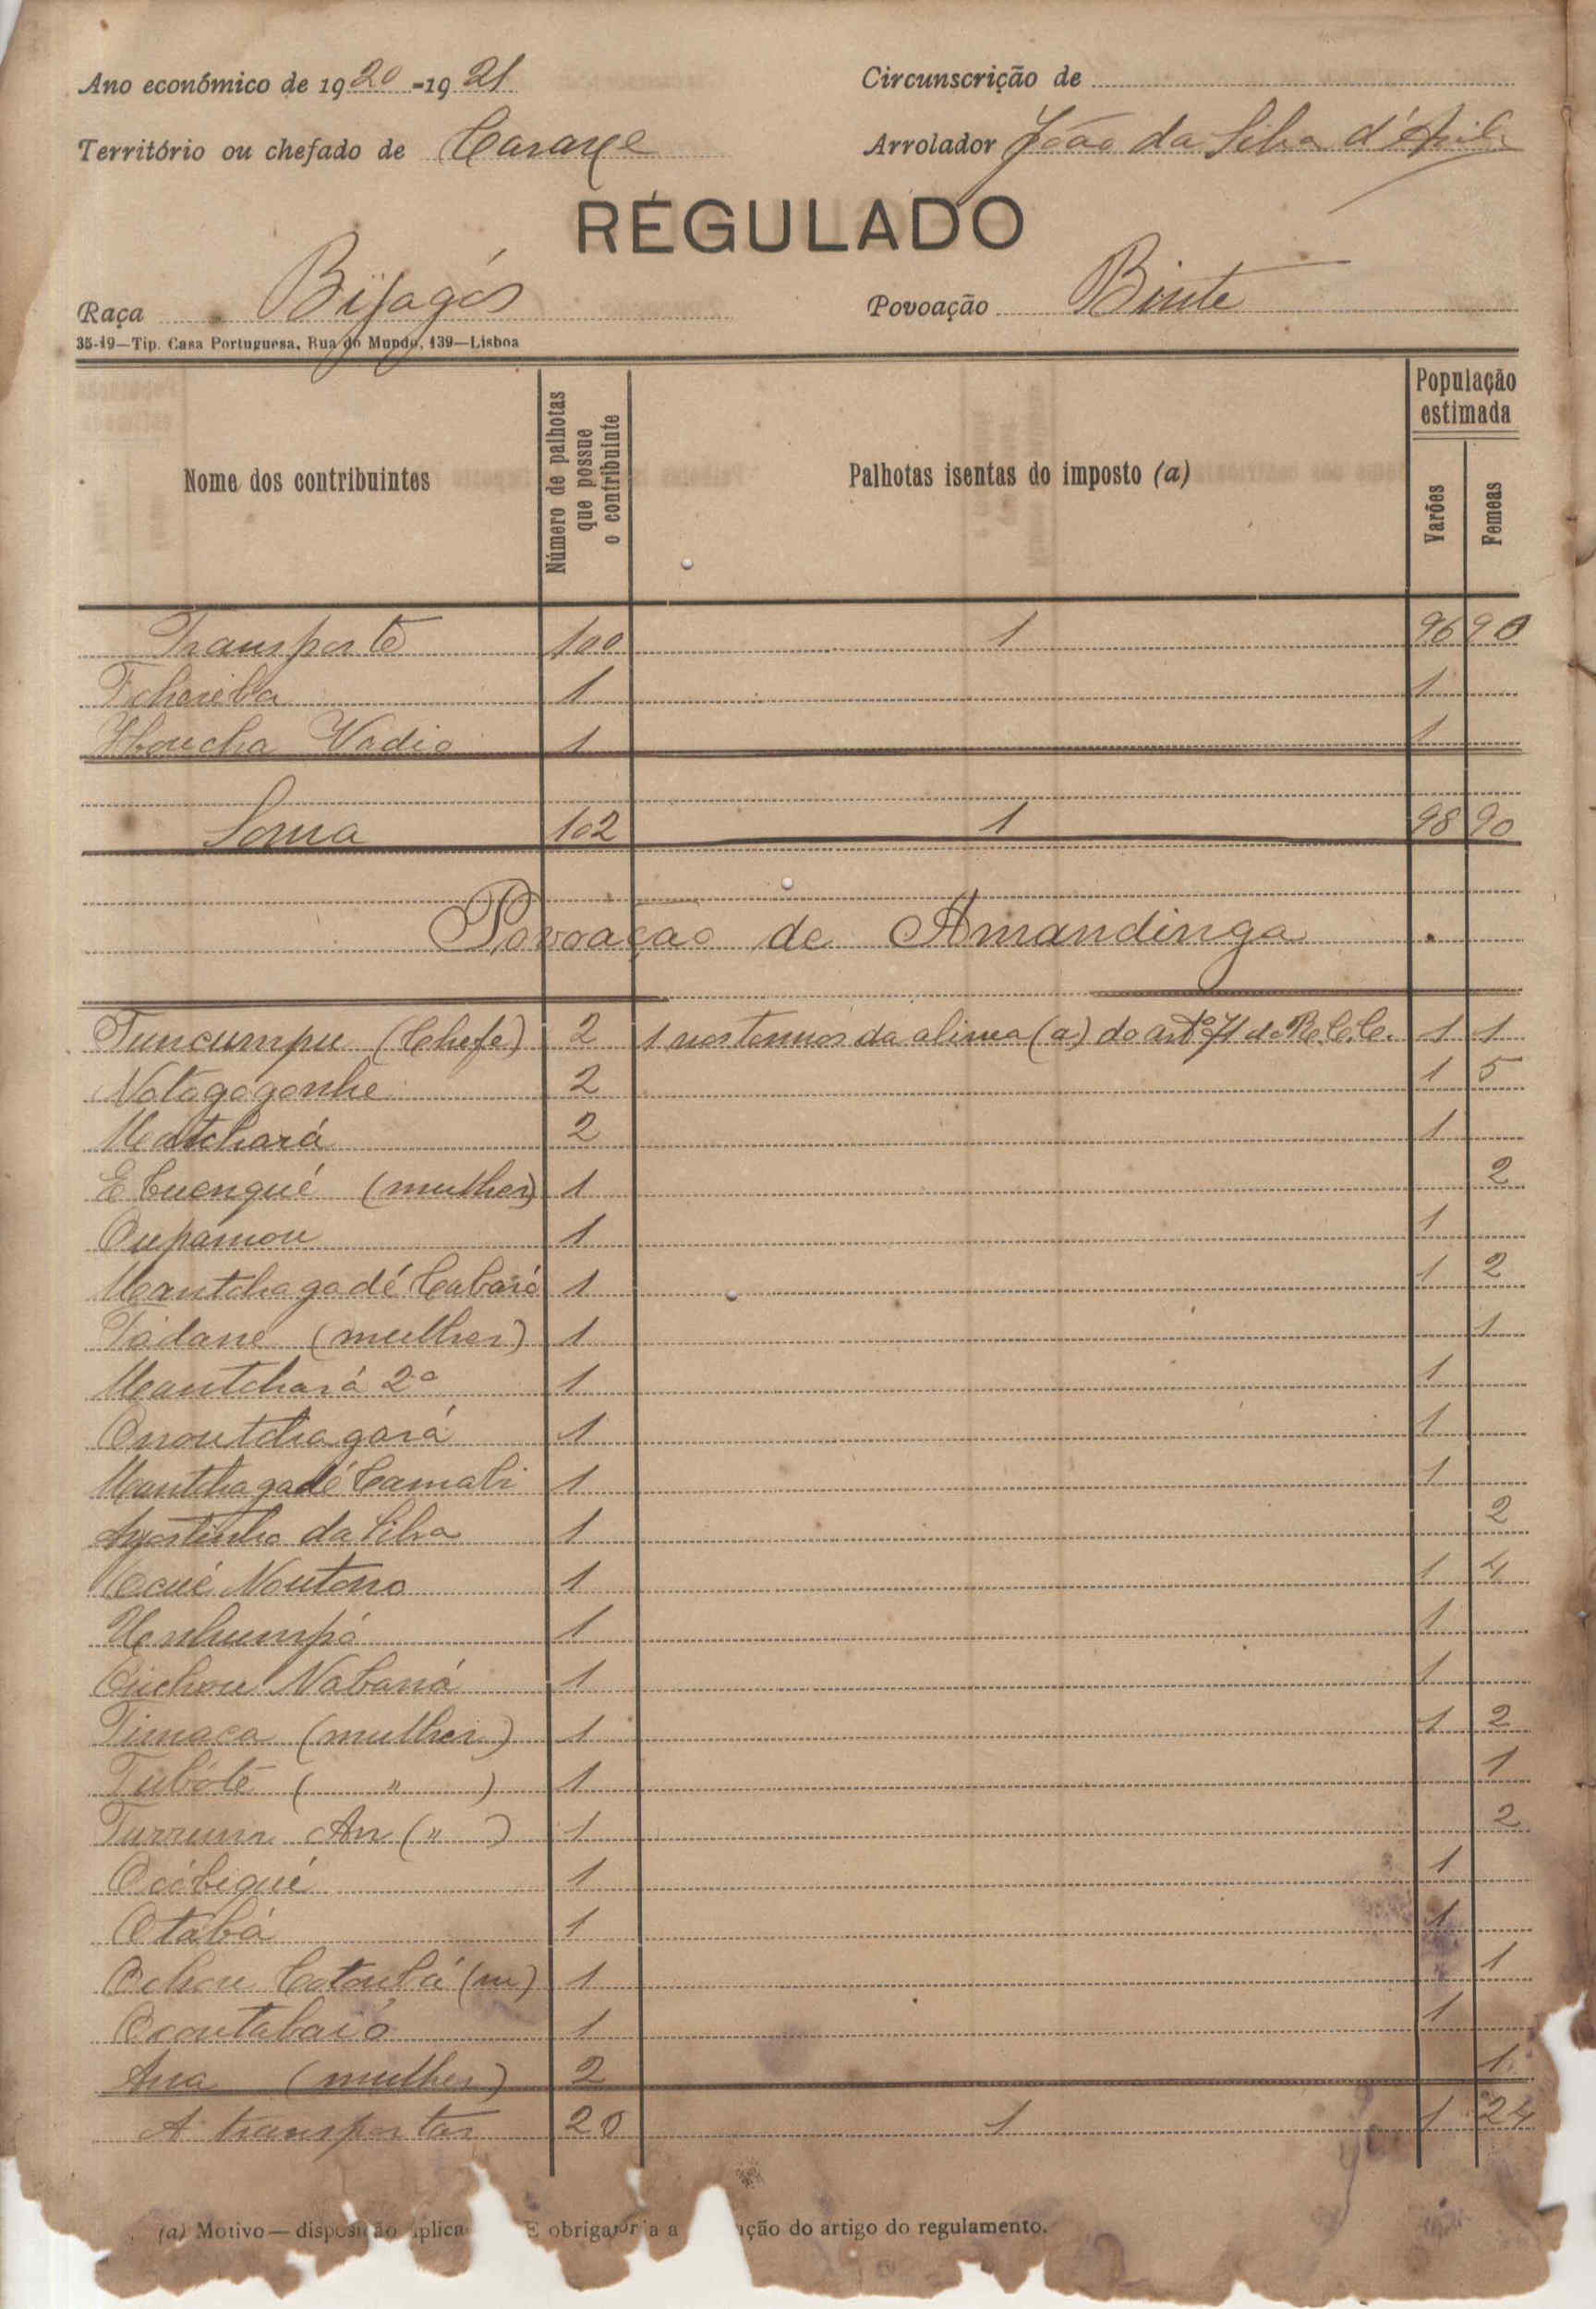 Ano económico de 1920-1921
Circunscrição de
Território ou chefado de Caraxe
Arrolador João da Silva d'
RÉGULADO
Raça Bijagós
Povoação Binte
35-19—Tip. Casa Portuguesa, Rua do Mundo, 139—Lisboa
Nome dos contribuintes
Número de palhotas que possue o contribuinte
Palhotas isentas do imposto (a)
População estimada
Varões
Femeas
Transporte 100 1 96 90
1 1
Vadio 1 1
Soma 102 1 98 90
Povoação de Amandinga
Tuncumpu (Chefe) 2 1 nos termos da alinea (a) do artº 71 do R.C.C. 1 1
Notogogonhe 2 1 5
Matchará 2 1
E Cuenqué (mulher) 1 2
Oupamou 1 1
Mantchagadé Cabaió 1 1 2
Tádane (mulher) 1 1
Mantchará 2º 1 1
Onoutchagará 1 1
Mantchagadé Camabi 1 1
Agostinho da Silva 1 2
Noutono 1 1 4
1 1
Nabaná 1 1
Timaca (mulher) 1 1 2
Tubóté ( " ) 1 1
An ( " ) 1 2
1 1
Otabá 1 1
Ochou (m) 1 1
Ocoutabaió 1 1
Ana (mulher) 2 1
A transportar 20 1 1 24
(a) Motivo — disposição aplica E obrigatória a ção do artigo do regulamento.